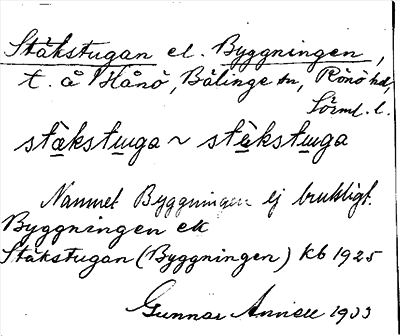 Stäkstugan el. Byggningen,
t. å Hånö, Bälinge sn, Rönö hd,
Sörml. l.
stäkstuga ~ stäkstuga
Namnet Byggningen ej brukligt.
Byggningen ell
Stäkstugan (Byggningen) Kb 1925
Gunnar 1933